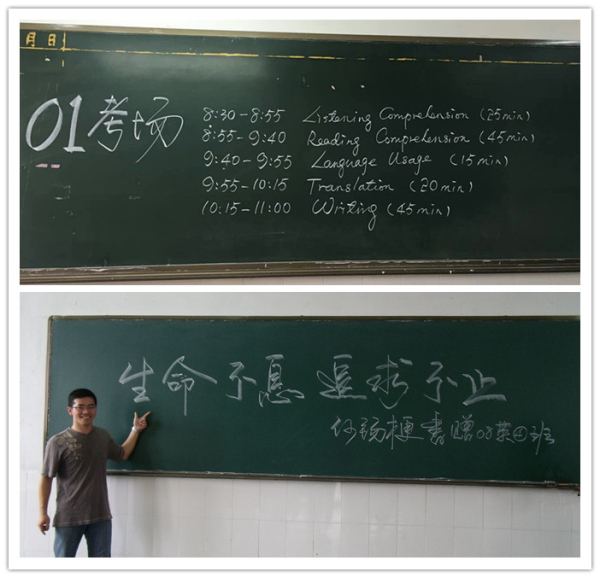 月 日
01考场
8:30-8:55 Listening Comprehension (25min)
8:55-9:40 Reading Comprehension (45min)
9:40-9:55 Language Usage (15min)
9:55-10:15 Translation (20min)
10:15-11:00 Writing (45min)
生命不息 追求不止
書贈 英④班